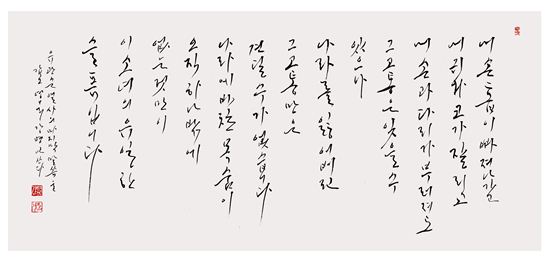 내 손톱이
내 귀와 코가 잘리고
내 손과 다리가 부러져도
그 고통은 잇을 수
있으나
나라를 잃어버린
그 고통만은
견딜 수가 없습니다
나라에 바칠 목숨이
오직 하나밖에
없는 것만이
이 소녀의 유일한
슬픔입니다
유관순 열사의 마지막 말씀을